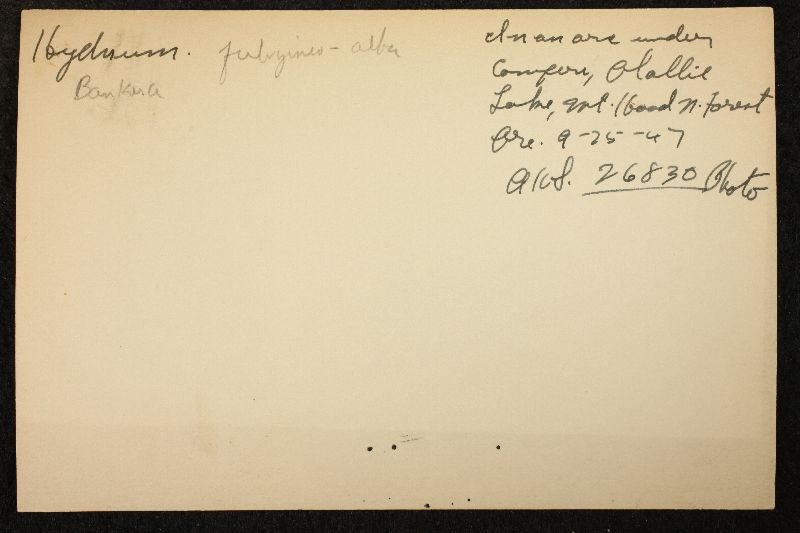 Hydnum. fuligineo-alba
Bankera
In an arc under
Conifers, Olallie
Lake, Mt. Hood N. Forest
Ore. 9-25-47
AHS. 26830 Photo